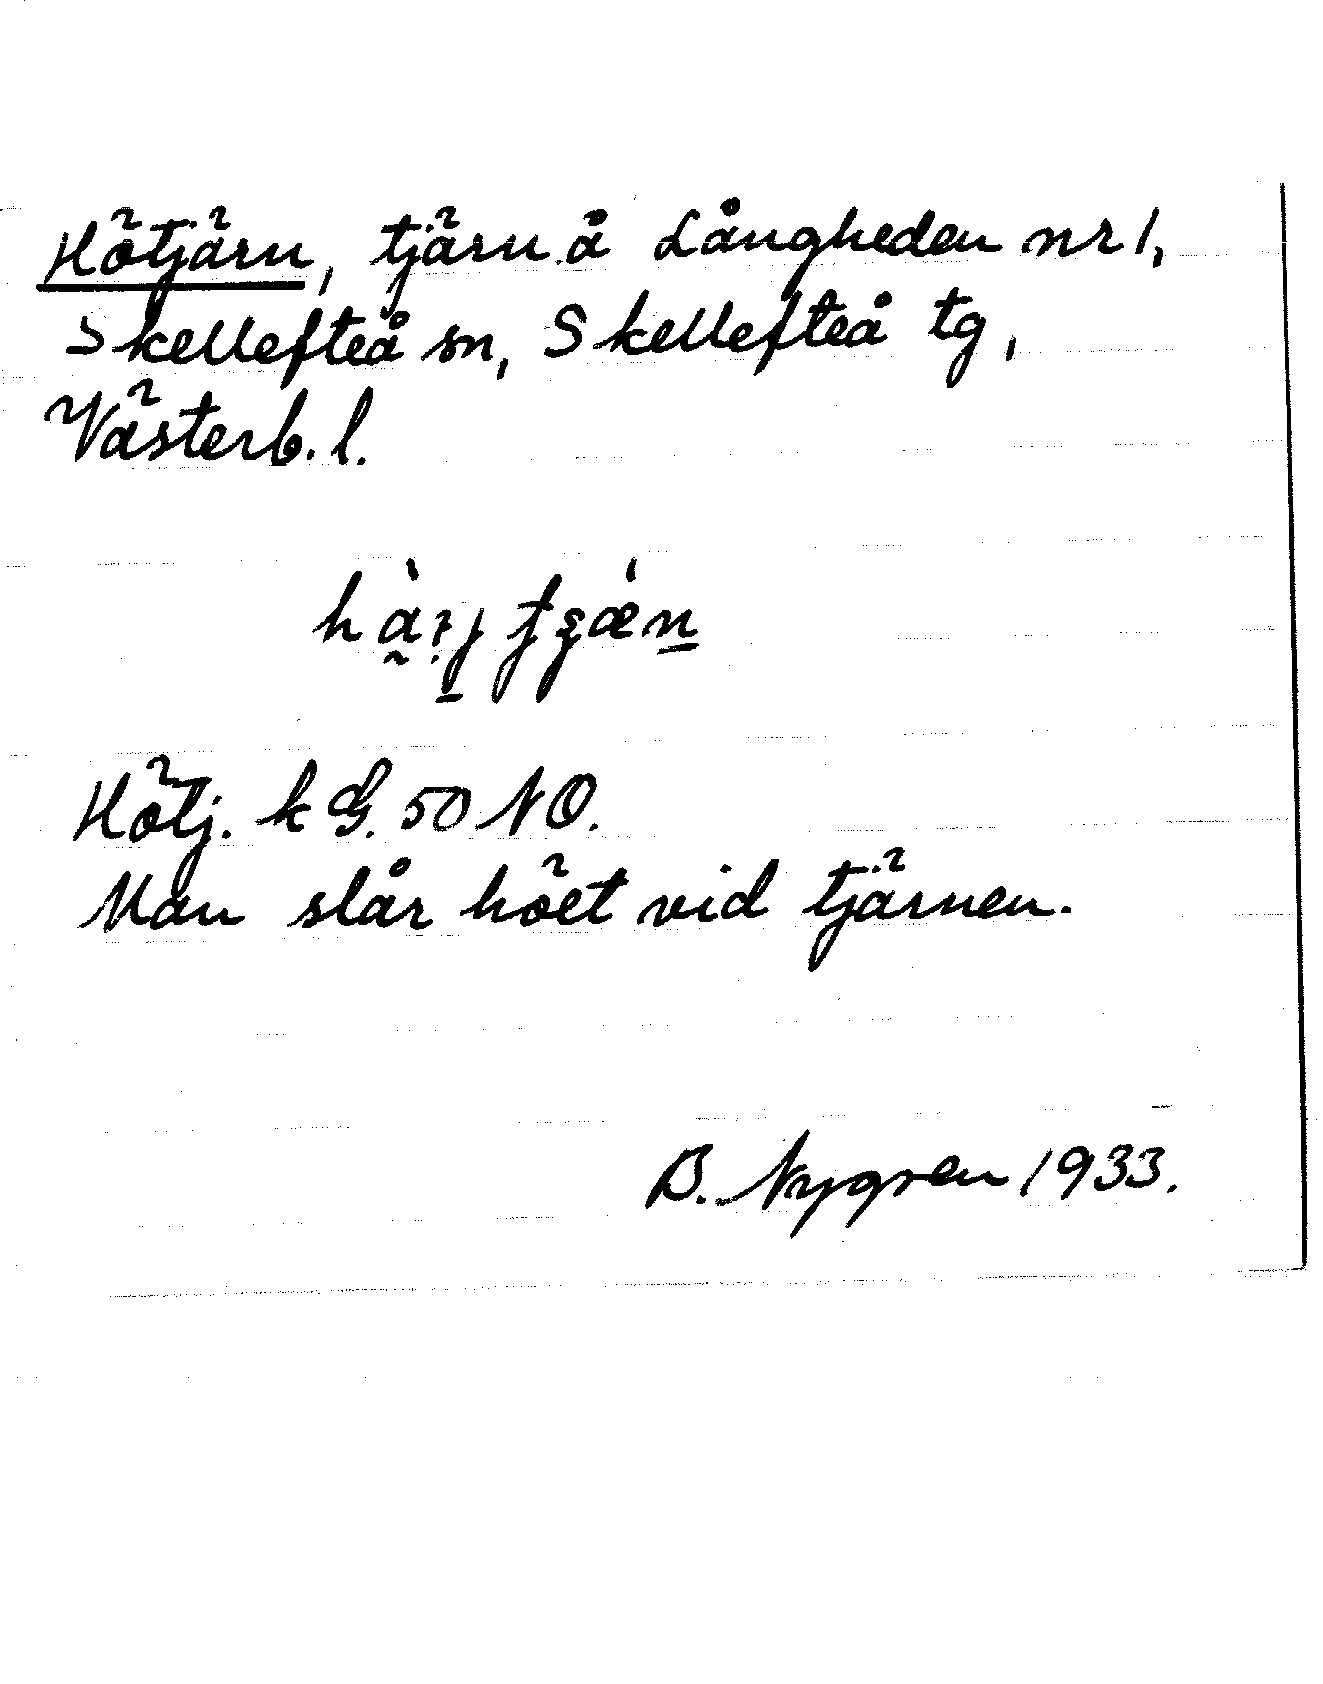 Hötjärn, tjärn å Långheden nr 1,
Skellefteå sn, Skellefteå tg,
Västerb. l.
Hötj. k G. 50 NO.
Man slår höet vid tjärnen.
B. Nygren 1933.